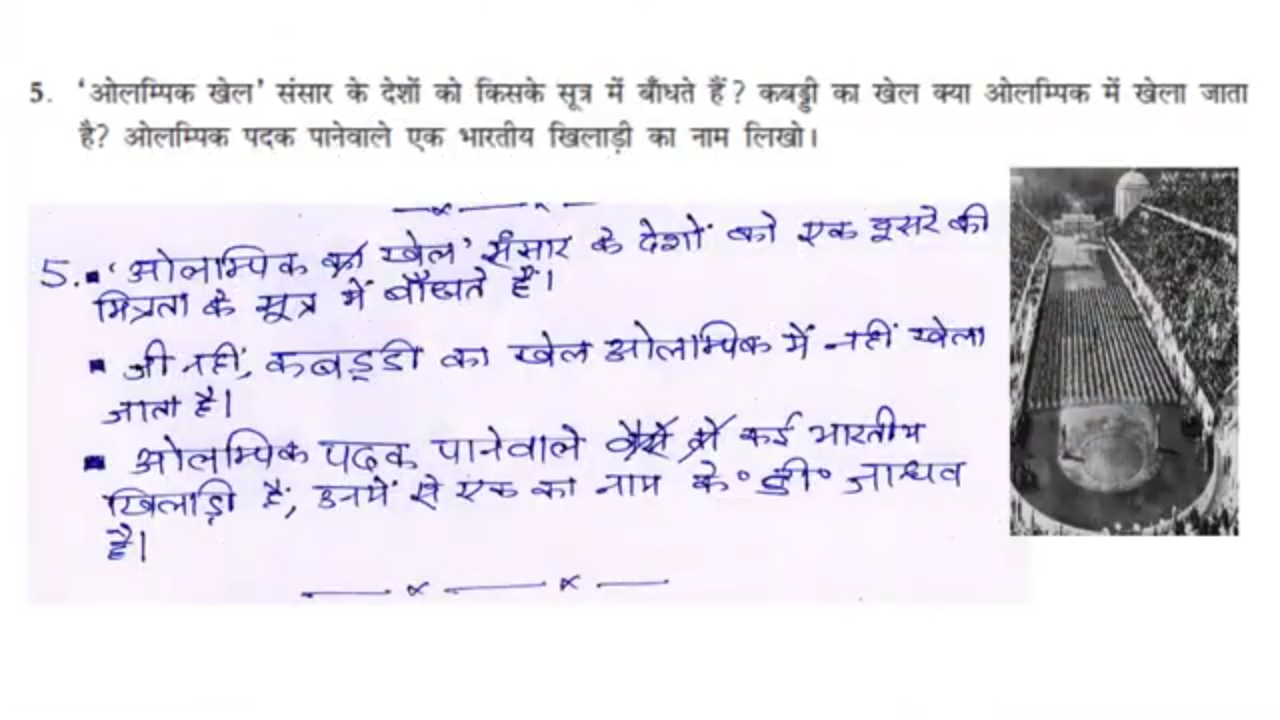 5. 'ओलम्पिक खेल' संसार के देशों को किसके सूत्र में बाँधते हैं? कबड्डी का खेल क्या ओलम्पिक में खेला जाता
है? ओलम्पिक पदक पानेवाले एक भारतीय खिलाड़ी का नाम लिखो।
5. ▪ 'ओलाम्पिक खेल' संसार के देशों को एक दूसरे की
मित्रता के सूत्र में बाँधते हैं।
▪ जी नहीं, कबड्डी का खेल ओलाम्पिक में नहीं खेला
जाता है।
▪ ओलम्पिक पदक पानेवाले कई भारतीय
खिलाड़ी हैं, उनमें से एक का नाम के॰ डी॰ जाधव
है।